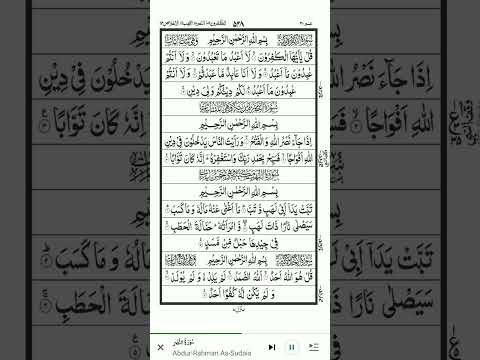 ٥٣٨
بِسْمِ اللهِ الرَّحْمٰنِ الرَّحِيْمِ
قُلْ يٰٓاَيُّهَا الْكٰفِرُوْنَ ۙ لَآ اَعْبُدُ مَا تَعْبُدُوْنَ ۙ وَلَآ اَنْتُمْ
عٰبِدُوْنَ مَآ اَعْبُدُ ۚ وَلَآ اَنَا عَابِدٌ مَّا عَبَدْتُّمْ ۙ وَلَآ اَنْتُمْ
عٰبِدُوْنَ مَآ اَعْبُدُ ۗ لَكُمْ دِيْنُكُمْ وَلِيَ دِيْنِ
بِسْمِ اللهِ الرَّحْمٰنِ الرَّحِيْمِ
اِذَا جَآءَ نَصْرُ اللهِ وَالْفَتْحُ ۙ وَرَاَيْتَ النَّاسَ يَدْخُلُوْنَ فِيْ دِيْنِ
اللهِ اَفْوَاجًا ۙ فَسَبِّحْ بِحَمْدِ رَبِّكَ وَاسْتَغْفِرْهُ ۚ اِنَّهٗ كَانَ تَوَّابًا
بِسْمِ اللهِ الرَّحْمٰنِ الرَّحِيْمِ
تَبَّتْ يَدَآ اَبِيْ لَهَبٍ وَّتَبَّ ۗ مَآ اَغْنٰى عَنْهُ مَالُهٗ وَمَا كَسَبَ
سَيَصْلٰى نَارًا ذَاتَ لَهَبٍ ۚ وَّامْرَاَتُهٗ ۗ حَمَّالَةَ الْحَطَبِ
فِيْ جِيْدِهَا حَبْلٌ مِّنْ مَّسَدٍ
بِسْمِ اللهِ الرَّحْمٰنِ الرَّحِيْمِ
قُلْ هُوَ اللهُ اَحَدٌ ۚ اَللهُ الصَّمَدُ ۚ لَمْ يَلِدْ ۙ وَلَمْ يُوْلَدْ
وَلَمْ يَكُنْ لَّهٗ كُفُوًا اَحَدٌ
Abdur-Rahman As-Sudais